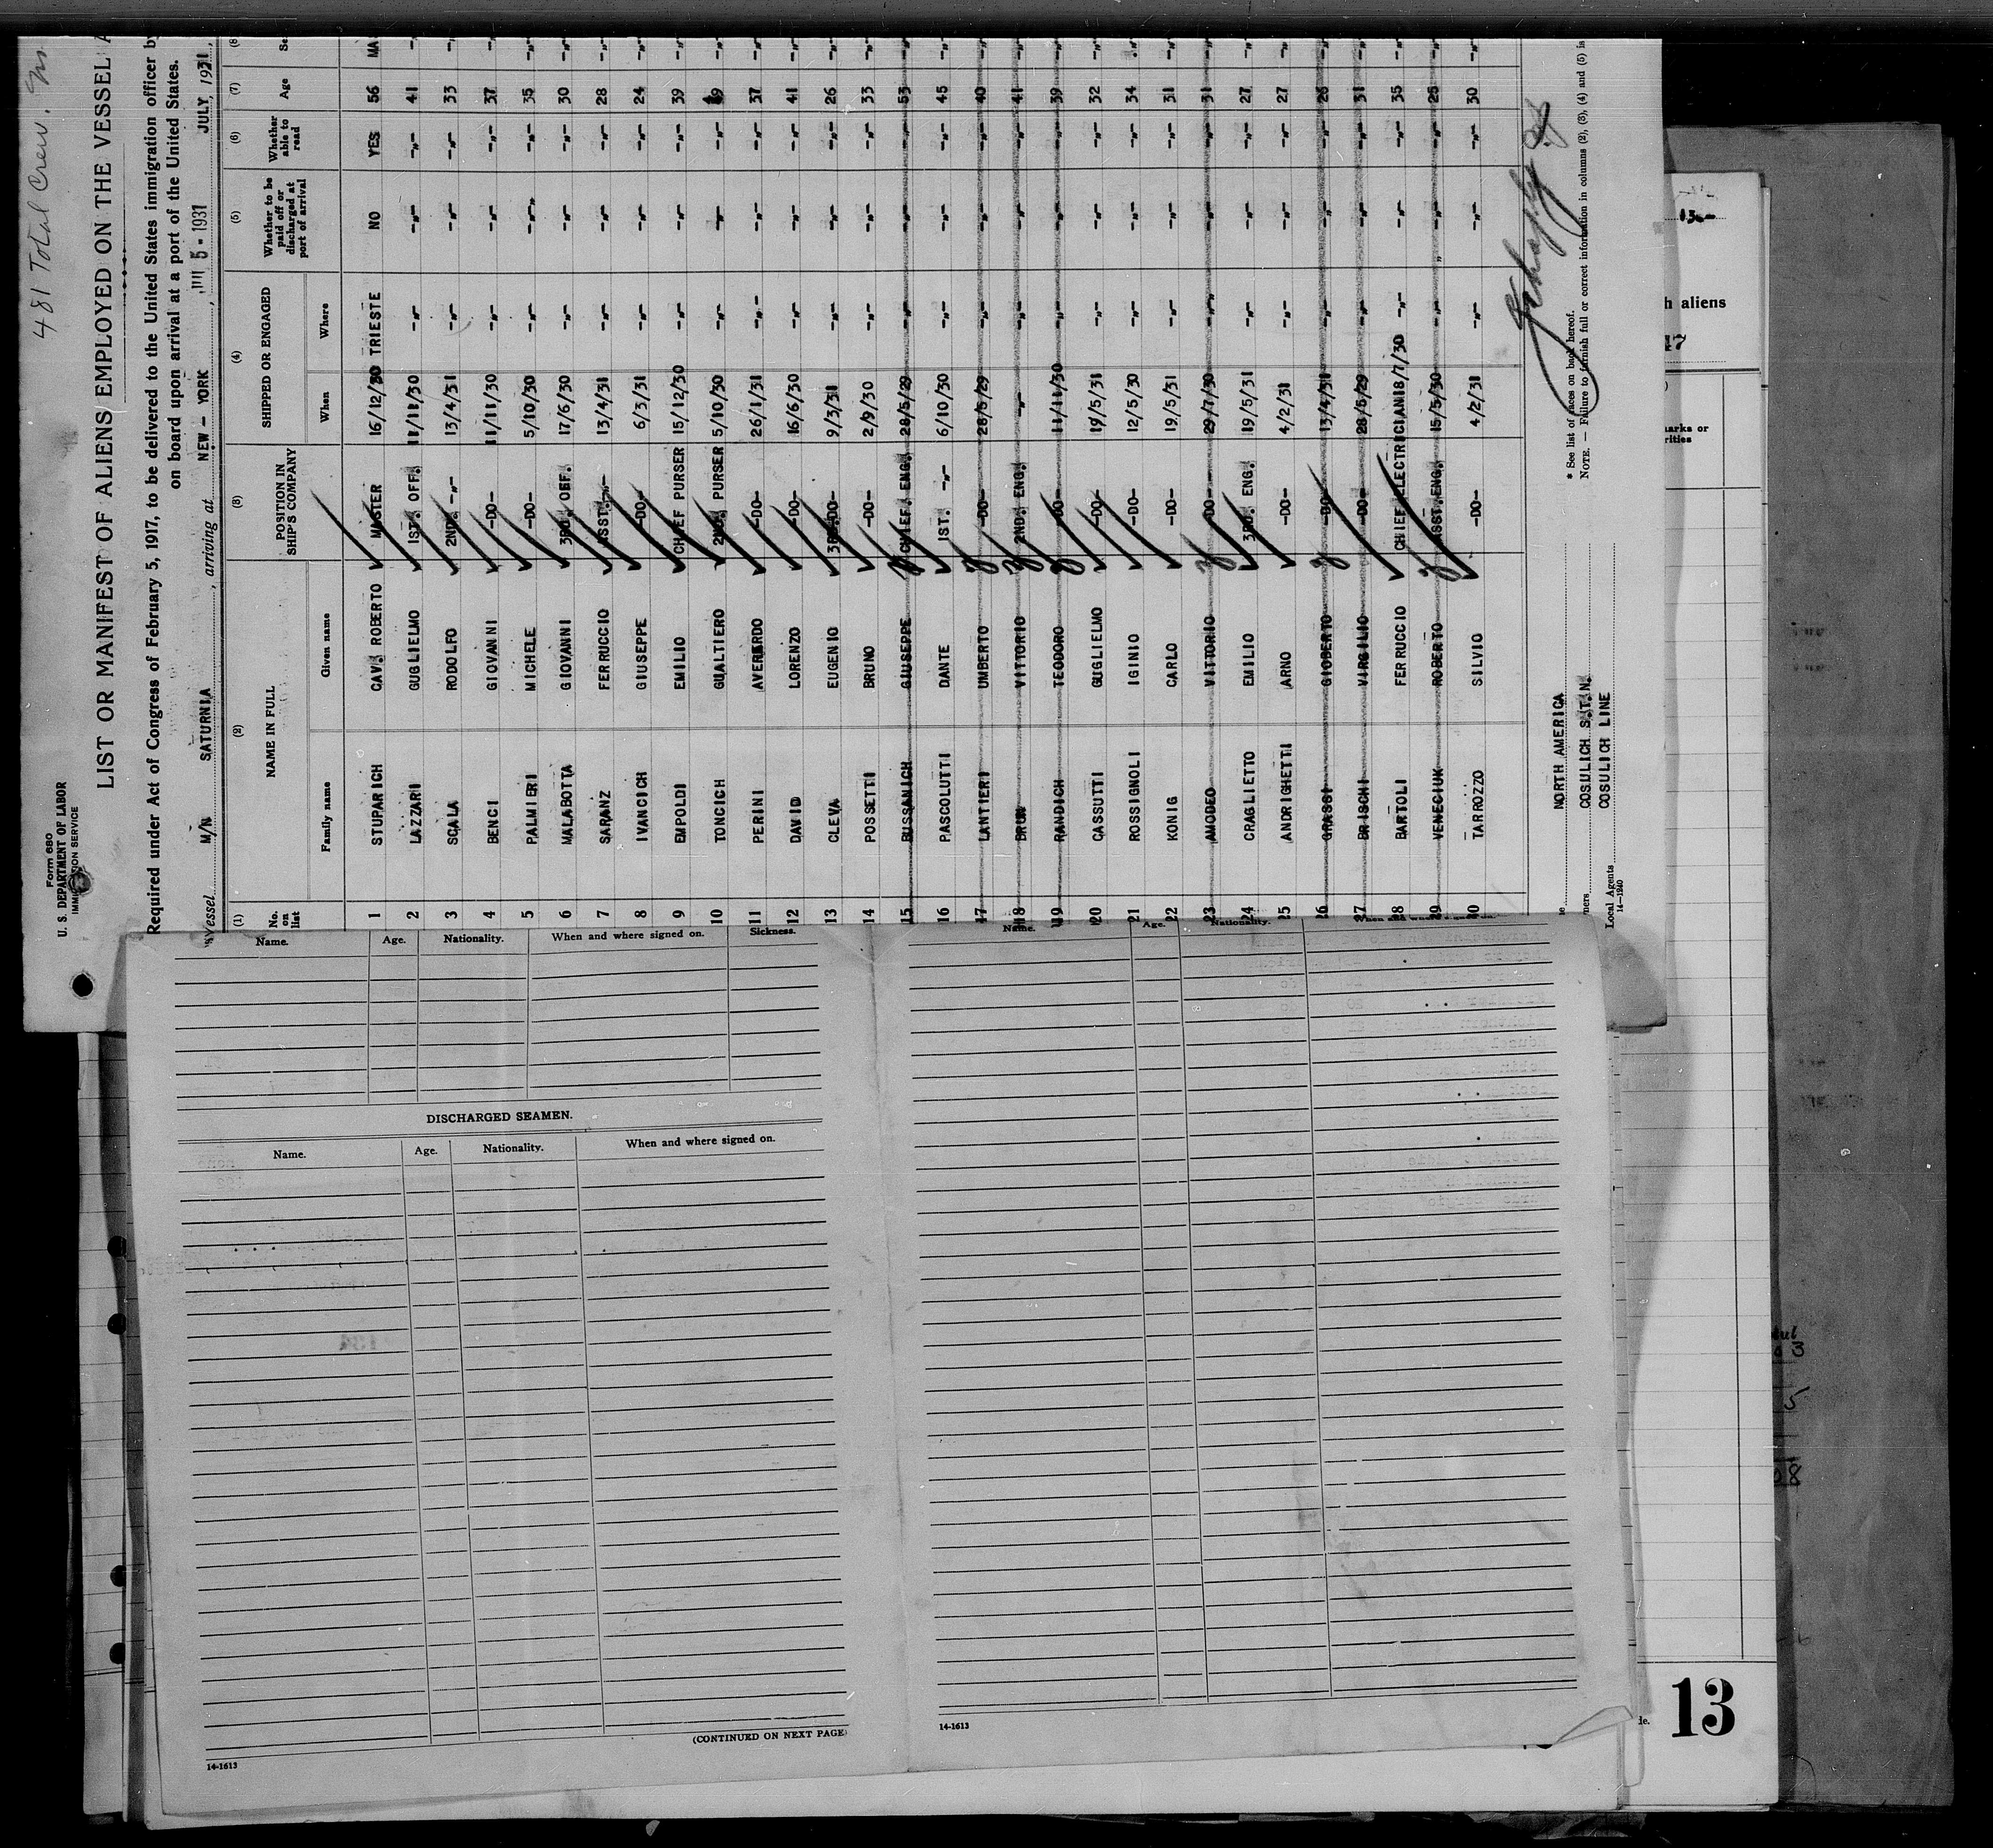 481 Total Crew.
Form 680
U. S. DEPARTMENT OF LABOR
IMMIGRATION SERVICE
LIST OR MANIFEST OF ALIENS EMPLOYED ON THE VESSEL A
Required under Act of Congress of February 5, 1917, to be delivered to the United States immigration officer by
on board upon arrival at a port of the United States.
Vessel M/N SATURNIA, arriving at NEW - YORK, 5 - 1931 JULY, 1931,
(1) (2) (3) (4) (5) (6) (7) (8
No. on list NAME IN FULL POSITION IN SHIP'S COMPANY SHIPPED OR ENGAGED Whether to be paid off or discharged at port of arrival Whether able to read Age Se
Family name Given name When Where
1 STUPARICH CAV. ROBERTO MASTER 16/12/30 TRIESTE NO YES 56 MA
2 LAZZARI GUGLIELMO 1ST. OFF. 11/11/30 -"- -"- -"- 41 -"-
3 SCALA RODOLFO 2ND. -"- 13/4/31 -"- -"- -"- 33 -"-
4 BENCI GIOVANNI -DO- 11/11/30 -"- -"- -"- 37 -"-
5 PALMIERI MICHELE -DO- 5/10/30 -"- -"- -"- 35 -"-
6 MALABOTTA GIOVANNI 3RD. OFF. 17/6/30 -"- -"- -"- 30 -"-
7 SARANZ FERRUCCIO ASST. -"- 13/4/31 -"- -"- -"- 28 -"-
8 IVANCICH GIUSEPPE -DO- 6/3/31 -"- -"- -"- 24 -"-
9 EMPOLDI EMILIO CHIEF PURSER 15/12/30 -"- -"- -"- 39 -"-
10 TONCICH GUALTIERO 2ND. PURSER 5/10/30 -"- -"- -"- -"-
11 PERINI AVERARDO -DO- 26/1/31 -"- -"- -"- 37 -"-
12 DAVID LORENZO -DO- 16/6/30 -"- -"- -"- 41 -"-
13 CLEVA EUGENIO 3RD-DO- 9/3/31 -"- -"- -"- 26 -"-
14 POSSETTI BRUNO -DO- 2/9/30 -"- -"- -"- 33 -"-
15 BUSSANICH GIUSEPPE CHIEF. ENG. 28/5/29 -"- -"- -"- 53 -"-
16 PASCOLUTTI DANTE 1ST. -"- 6/10/30 -"- -"- -"- 45 -"-
17 LANTIERI UMBERTO -DO- 28/5/29 -"- -"- -"- 40 -"-
18 BRUM VITTORIO 2ND. ENG. -"- -"- -"- -"- 41 -"-
19 RANDICH TEODORO -DO- 11/11/30 -"- -"- -"- 39 -"-
20 CASSUTTI GUGLIELMO -DO- 19/5/31 -"- -"- -"- 32 -"-
21 ROSSIGNOLI IGINIO -DO- 12/5/30 -"- -"- -"- 34 -"-
22 KONIG CARLO -DO- 19/5/31 -"- -"- -"- 31 -"-
23 AMODEO VITTORIO -DO- 29/7/30 -"- -"- -"- 31 -"-
24 CRAGLIETTO EMILIO 3RD. ENG. 19/5/31 -"- -"- -"- 27 -"-
25 ANDRIGHETTI ARNO -DO- 4/2/31 -"- -"- -"- 27 -"-
26 GRASSI GIOBERTO -DO- 13/4/31 -"- -"- -"- 26 -"-
27 BRISCHI VIRGILIO -DO- 28/5/29 -"- -"- -"- 31 -"-
28 BARTOLI FERRUCCIO CHIEF ELECTRICIAN 18/7/30 -"- -"- -"- 35 -"-
29 VENECIUK ROBERTO ASST. ENG. 15/5/30 -"- -"- -"- 25 -"-
30 TARROZZO SILVIO -DO- 4/2/31 -"- -"- -"- 30 -"-
NORTH AMERICA
COSULICH S.T.N.
Local Agents COSULICH LINE
14-1240
* See list of races on back hereof.
NOTE. — Failure to furnish full or correct information in columns (2), (3), (4) and (5) is
Name. Age. Nationality. When and where signed on. Sickness.
DISCHARGED SEAMEN.
Name. Age. Nationality. When and where signed on.
(CONTINUED ON NEXT PAGE)
14-1613
Name. Age. Nationality. When and where signed on.
14-1613
h aliens
arks or
rities
de.
13